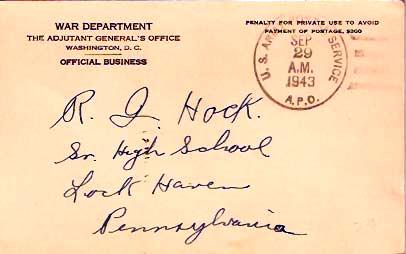 WAR DEPARTMENT
THE ADJUTANT GENERAL'S OFFICE
WASHINGTON, D. C.
OFFICIAL BUSINESS
PENALTY FOR PRIVATE USE TO AVOID
PAYMENT OF POSTAGE, $300
U. S. AR SERVICE
SEP
29
A.M.
1943
A.P.O.
R. J. Hock.
Sr. High School
Lock Haven
Pennsylvania